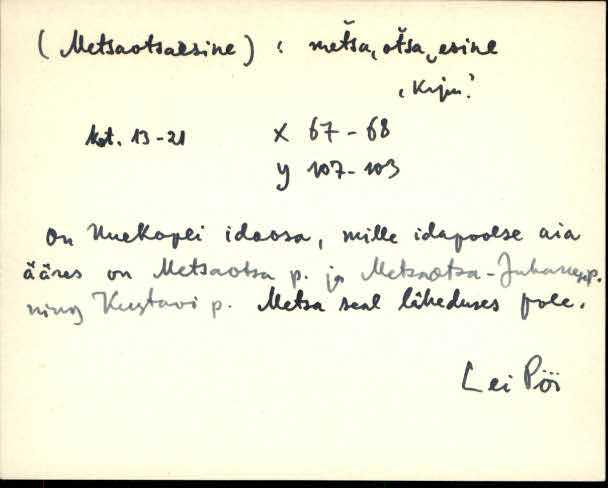 (Metsaotsaesine) : meťsa, oťsa esine
kat. 13-21 X 67-68
y 107-103
On Uuekopli idaosa, mille idapoolse aia
ääres on Metsaotsa p. ja Metsaotsa-Juhani p.
ning Kustavi p. Metsa seal läheduses pole.
Lei Pöi